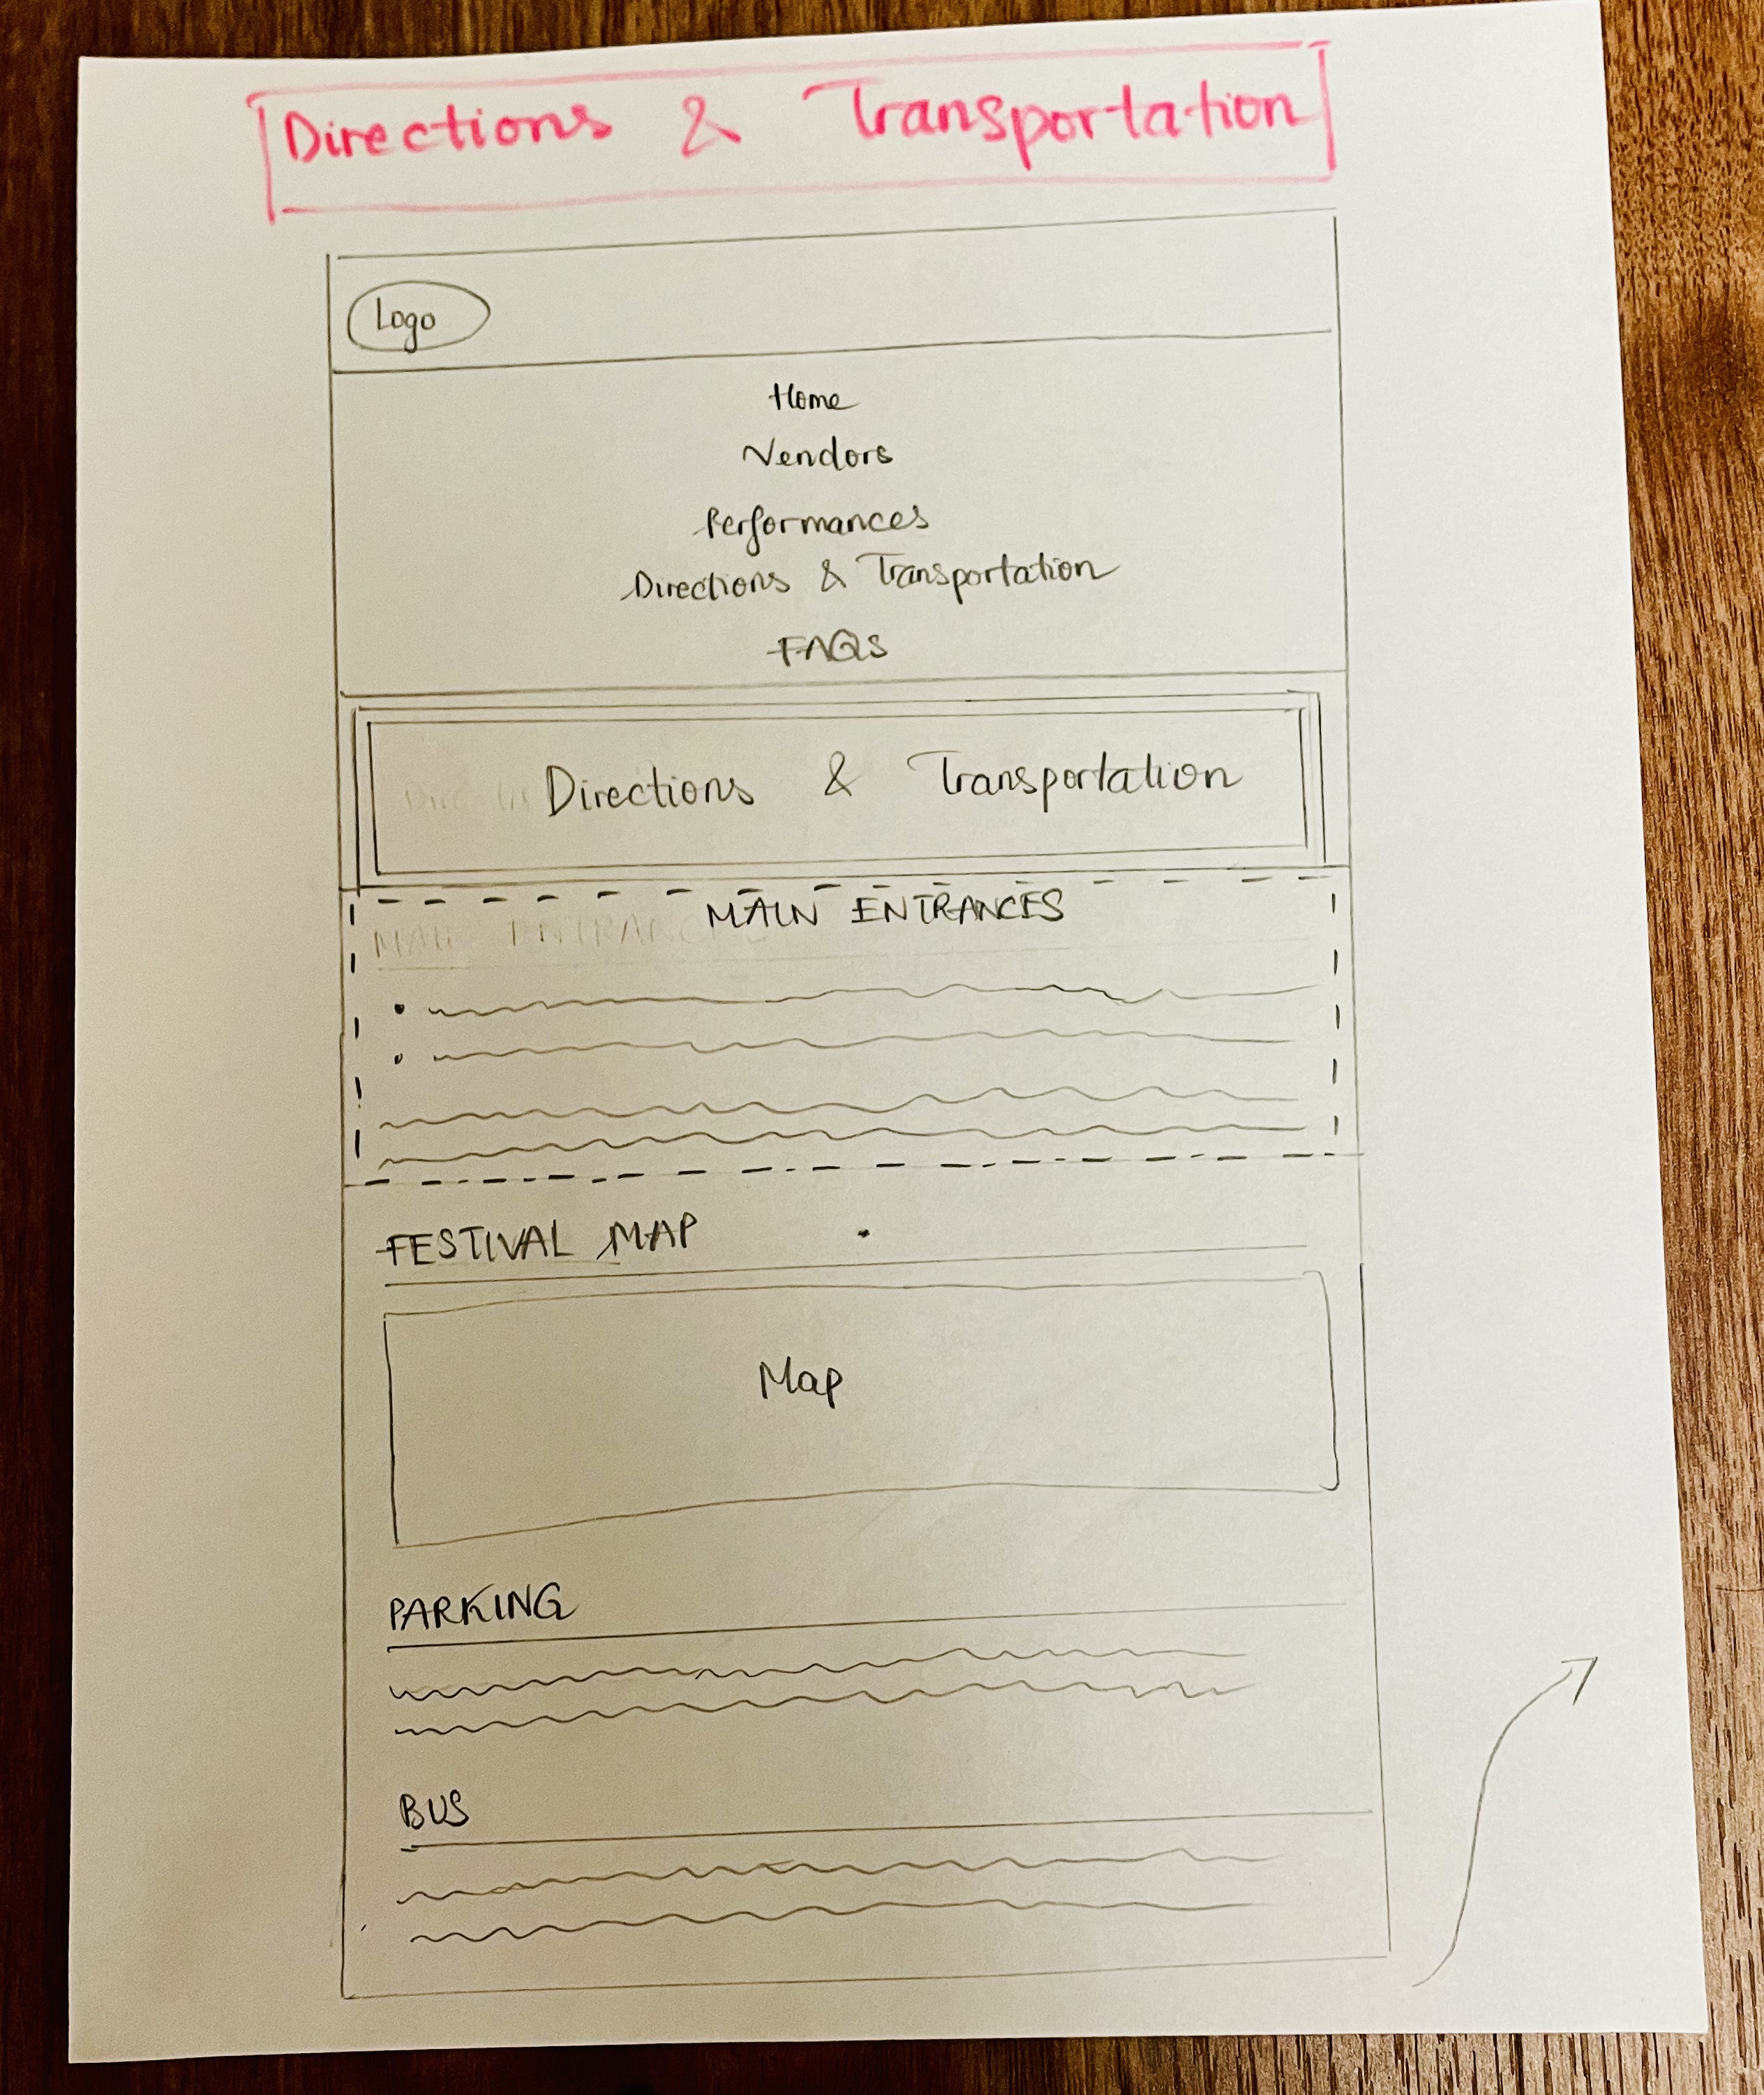 Directions & Transportation
Logo
Home
Vendors
Performances
Directions & Transportation
FAQs
Directions & Transportation
MAIN ENTRANCES
MAIN ENTRANCES
FESTIVAL MAP
Map
PARKING
BUS